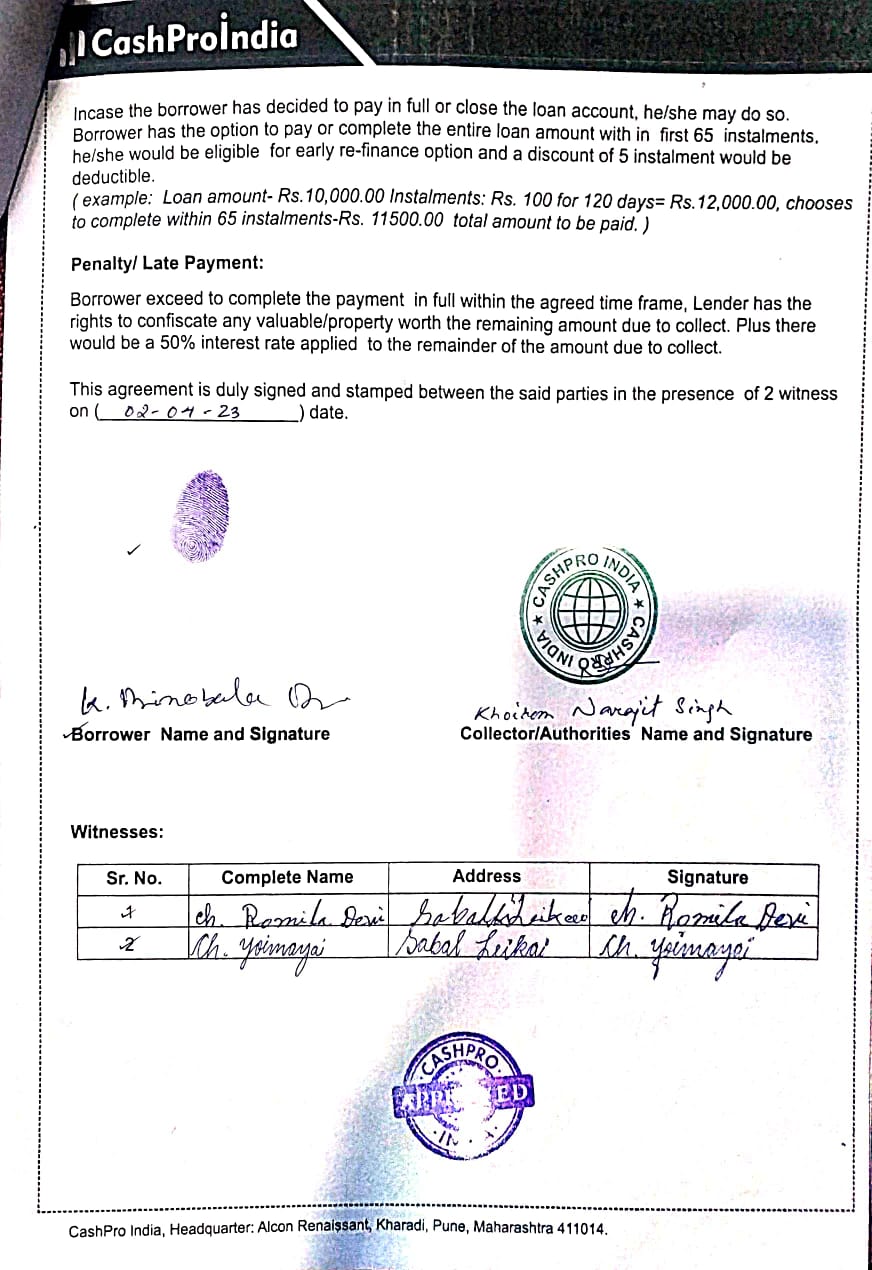 CashProIndia
Incase the borrower has decided to pay in full or close the loan account, he/she may do so.
Borrower has the option to pay or complete the entire loan amount with in first 65 instalments,
he/she would be eligible for early re-finance option and a discount of 5 instalment would be
deductible.
( example: Loan amount- Rs.10,000.00 Instalments: Rs. 100 for 120 days= Rs.12,000.00, chooses
to complete within 65 instalments-Rs. 11500.00 total amount to be paid. )
Penalty/ Late Payment:
Borrower exceed to complete the payment in full within the agreed time frame, Lender has the
rights to confiscate any valuable/property worth the remaining amount due to collect. Plus there
would be a 50% interest rate applied to the remainder of the amount due to collect.
This agreement is duly signed and stamped between the said parties in the presence of 2 witness
on ( 02-04-23 ) date.
CASHPRO INDIA ★ CASHPRO INDIA ★
K.
Khoirom Narajit Singh
Borrower Name and Signature Collector/Authorities Name and Signature
Witnesses:
Sr. No. Complete Name Address Signature
1 ch. Romila Devi ch. Romila Devi
2 Ch. Yoimayai Sabal Leikai Ch. Yoimayai
CASHPRO
INDIA
CashPro India, Headquarter: Alcon Renaissant, Kharadi, Pune, Maharashtra 411014.